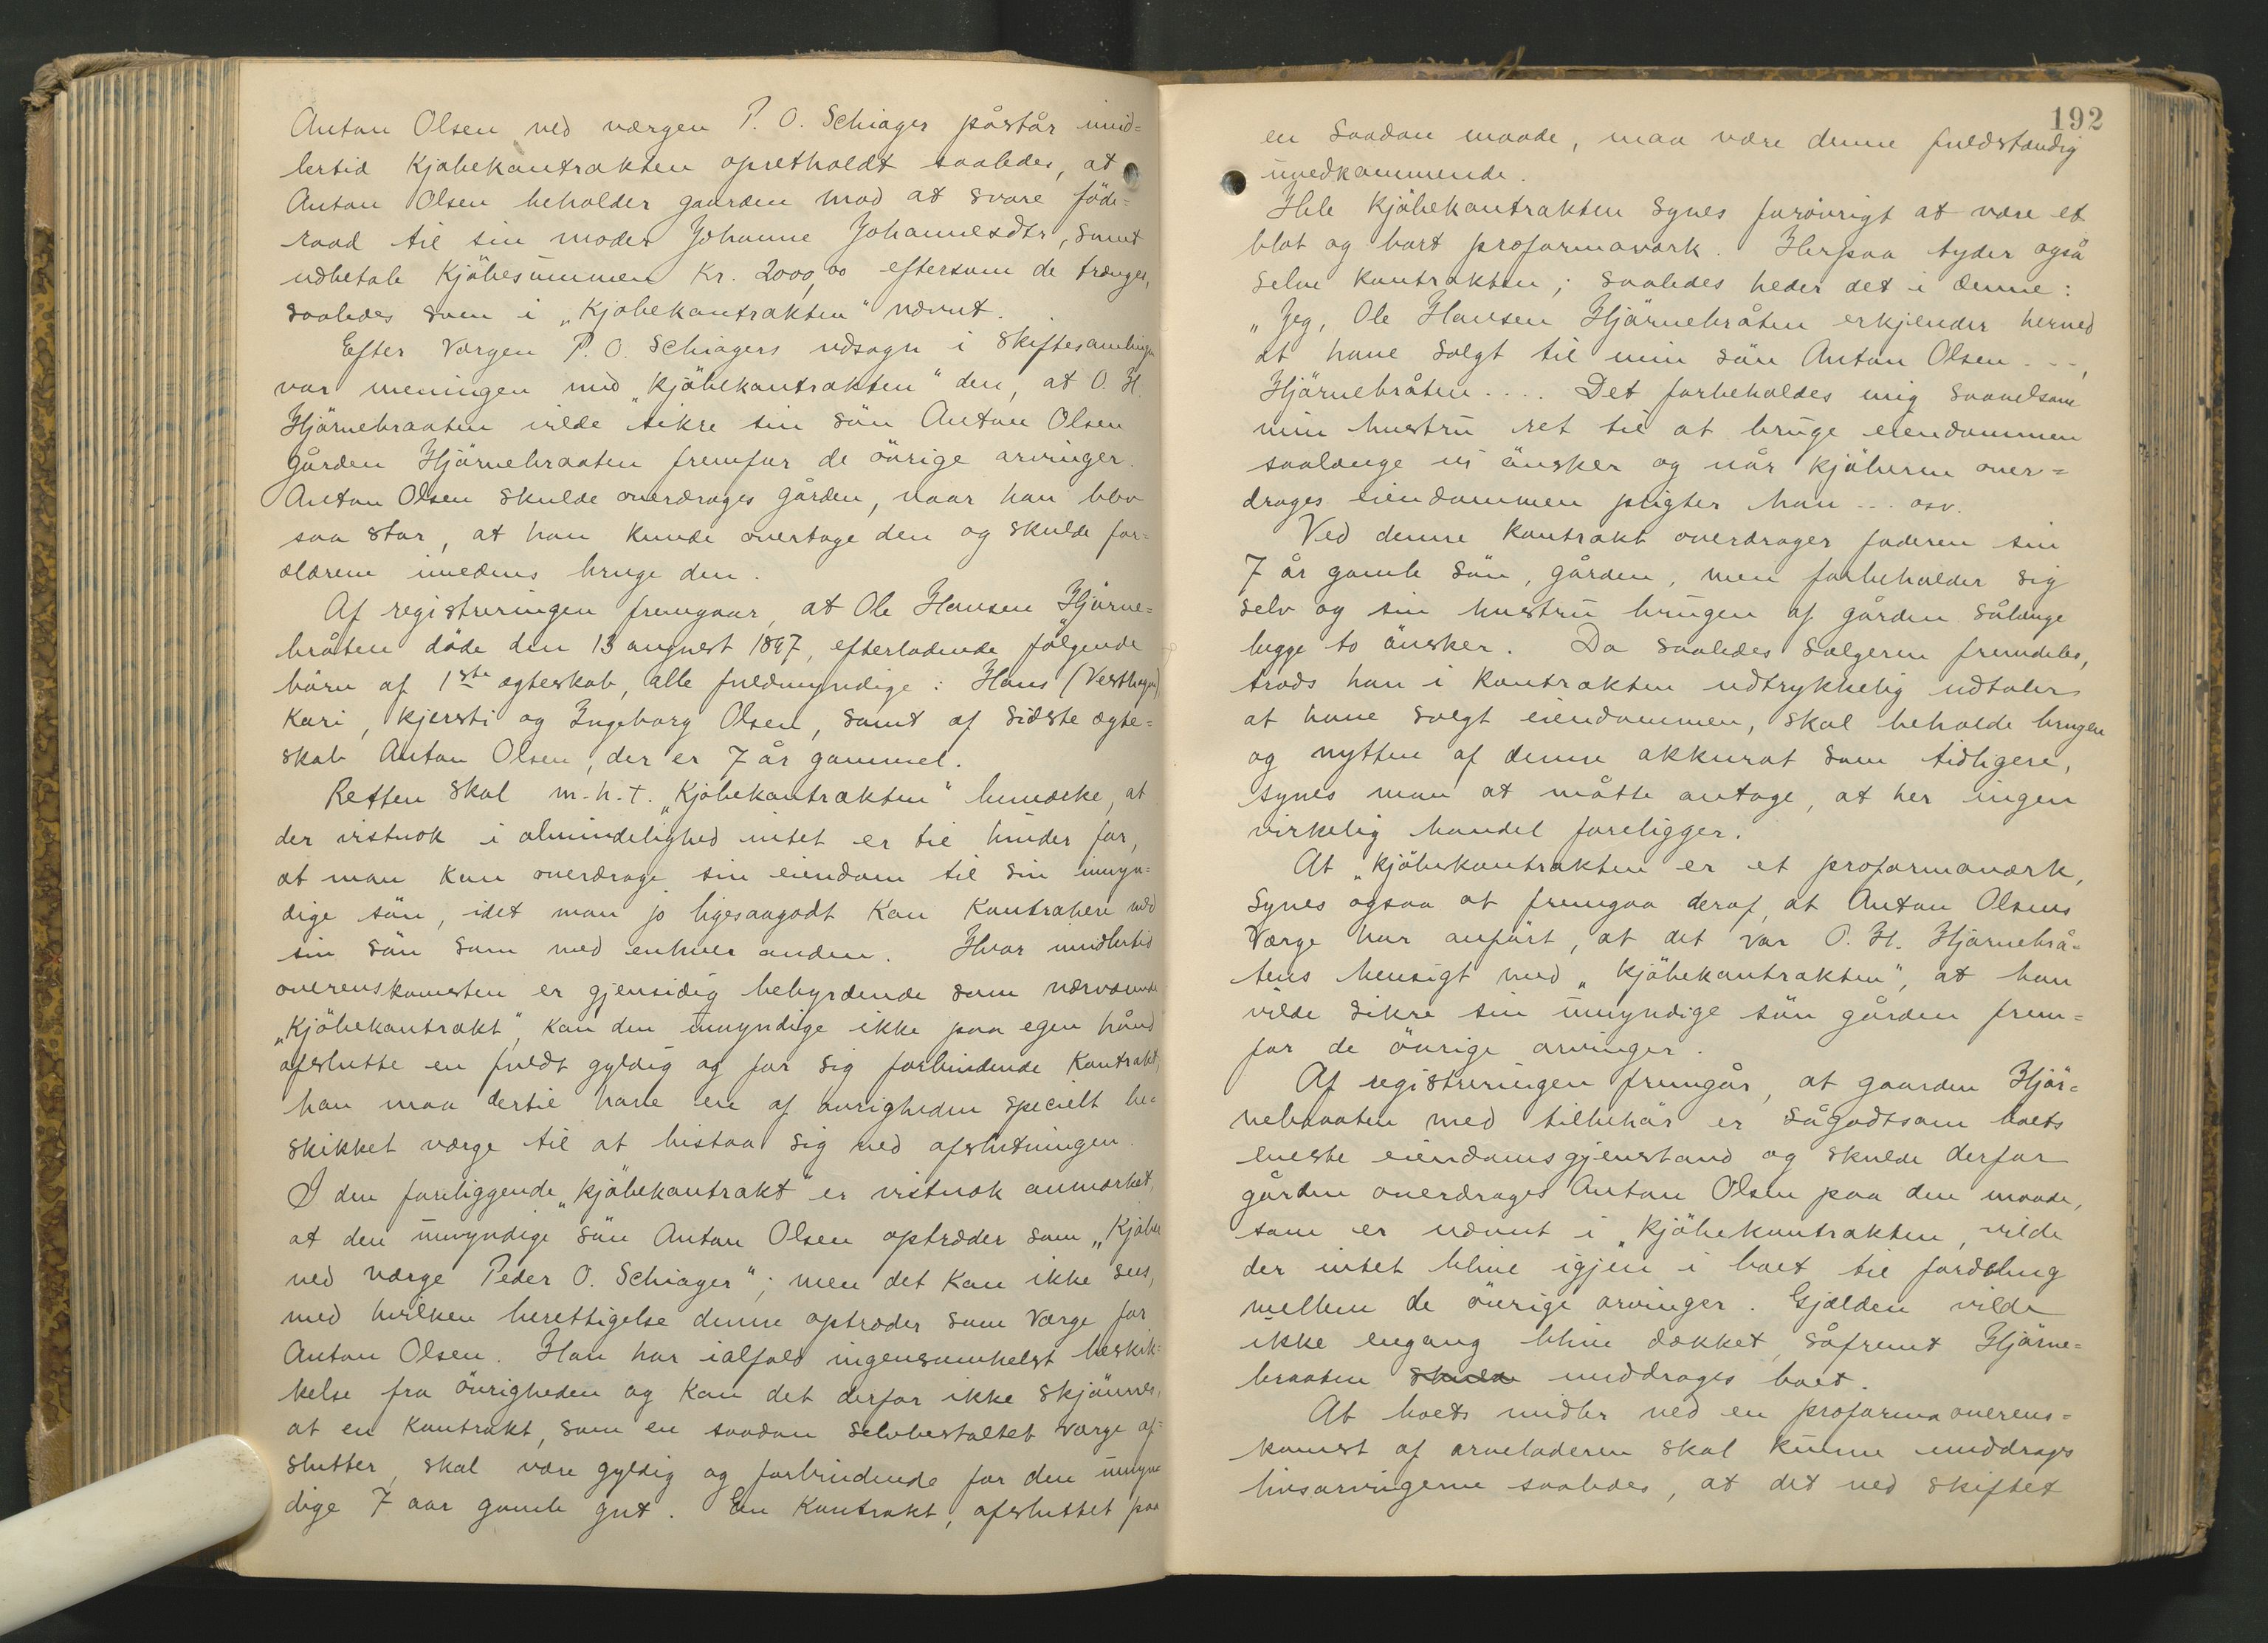 Anton Olsen ved værgen P. O. Schiager påstår imid=
lertid Kjøbekontrakten opretholdt saaledes, at
Anton Olsen beholder gaarden mod at svare föde=
raad til sin moder Johanne Johannesdtr, samt
udbetale Kjöbesummen Kr. 2000,00 eftersom de trænges,
saaledes som i „Kjøbekontrakten" nævnt.
Efter Værgen P. O. Schiagers udsagn i Skiftesamlingen
var meningen med „kjöbekontrakten" den, at O. H.
Hjörnebraaten vilde sikre sin sön Anton Olsen
gården Hjörnebraaten fremfor de övrige arvinger.
Anton Olsen skulde overdrages gården, naar han blev
saa stor, at han kunde overtage den og skulde for=
ældrene imedens bruge den.
Af registreringen fremgaar, at Ole Hansen Hjörne=
bråten döde den 13 august 1897, efterladende følgende
börn af 1ste ægteskab, alle fuldmyndige: Hans (Vesthagen)
Kari, Kjersti og Ingeborg Olsen, samt af sidste ægte=
skab Anton Olsen, der er 7 år gammel.
Retten skal m.h.t. „Kjöbekontrakten" bemærke, at
der vistnok i almindelighed intet er til hinder for,
at man kan overdrage sin eiendom til sin umyn=
dige sön, idet man jo ligesaagodt kan kontrahere med
sin sön som med enhver anden. Hvor imidlertid
overenskomsten er gjensidig bebyrdende som nærværende
„Kjöbekontrakt", kan den umyndige ikke paa egen hånd
afslutte en fuldt gyldig og for sig forbindende Kontrakt,
han maa dertil have en af øvrigheden specielt be=
skikket værge til at bistaa sig ved afslutningen.
I den foreliggende „kjöbekontrakt" er vistnok anmærket,
at den umyndige sön Anton Olsen optræder som „Kjøber
ved værge Peder O. Schiager"; men det kan ikke sees,
med hvilken berettigelse denne optræder som Værge for
Anton Olsen. Han har ialfald ingensomhelst beskik=
kelse fra övrigheden og kan det derfor ikke skjönnes,
at en Kontrakt, som en saadan selvbestaltet værge af=
slutter, skal være gyldig og forbindende for den umyn=
dige 7 aar gamle gut. En Kontrakt, afsluttet paa
192
en saadan maade, maa være denne fuldstændig
uvedkommende.
Hele Kjöbekontrakten synes forövrigt at være et
blot og bart proformaværk. Herpaa tyder også
selve kontrakten; saaledes heder det i denne:
„Jeg, Ole Hansen Hjörnebråten erkjender herved
at have solgt til min sön Anton Olsen ---,
Hjörnebråten.... Det forbeholdes mig saavelsom
min hustru ret til at bruge eiendommen
saalænge vi önsker og når kjøberen over=
drages eiendommen pligter han ... osv.
Ved denne kontrakt overdrager faderen sin
7 år gamle sön, gården, men forbeholder sig
selv og sin hustru brugen af gården sålænge
begge to önsker. Da saaledes sælgeren fremdeles,
trods han i kontrakten udtrykkelig udtaler
at have solgt eiendommen, skal beholde brugen
og nytten af denne akkurat som tidligere,
synes man at måtte antage, at her ingen
virkelig handel foreligger.
At „kjöbekontrakten er et proformaværk,
synes ogsaa at fremgaa deraf, at Anton Olsens
Værge har anfört, at det var O. H. Hjörnebrå=
tens hensigt med „kjöbekontrakten", at han
vilde sikre sin umyndige sön gården frem=
for de övrige arvinger.
Af registreringen fremgår, at gaarden Hjör=
nebraaten med tilbehör er sågodtsom boets
eneste eiendomsgjenstand og skulde derfor
gården overdrages Anton Olsen paa den maade,
som er nævnt i „kjöbekontrakten, vilde
der intet blive igjen i boet til fordeling
mellem de övrige arvinger. Gjælden vilde
ikke engang blive dækket, såfremt Hjörne=
braaten skulde unddrages boet.
At boets midler ved en proforma overens=
komst af arveladeren skal kunne unddrages
livsarvingerne saaledes, at det ved skiftet